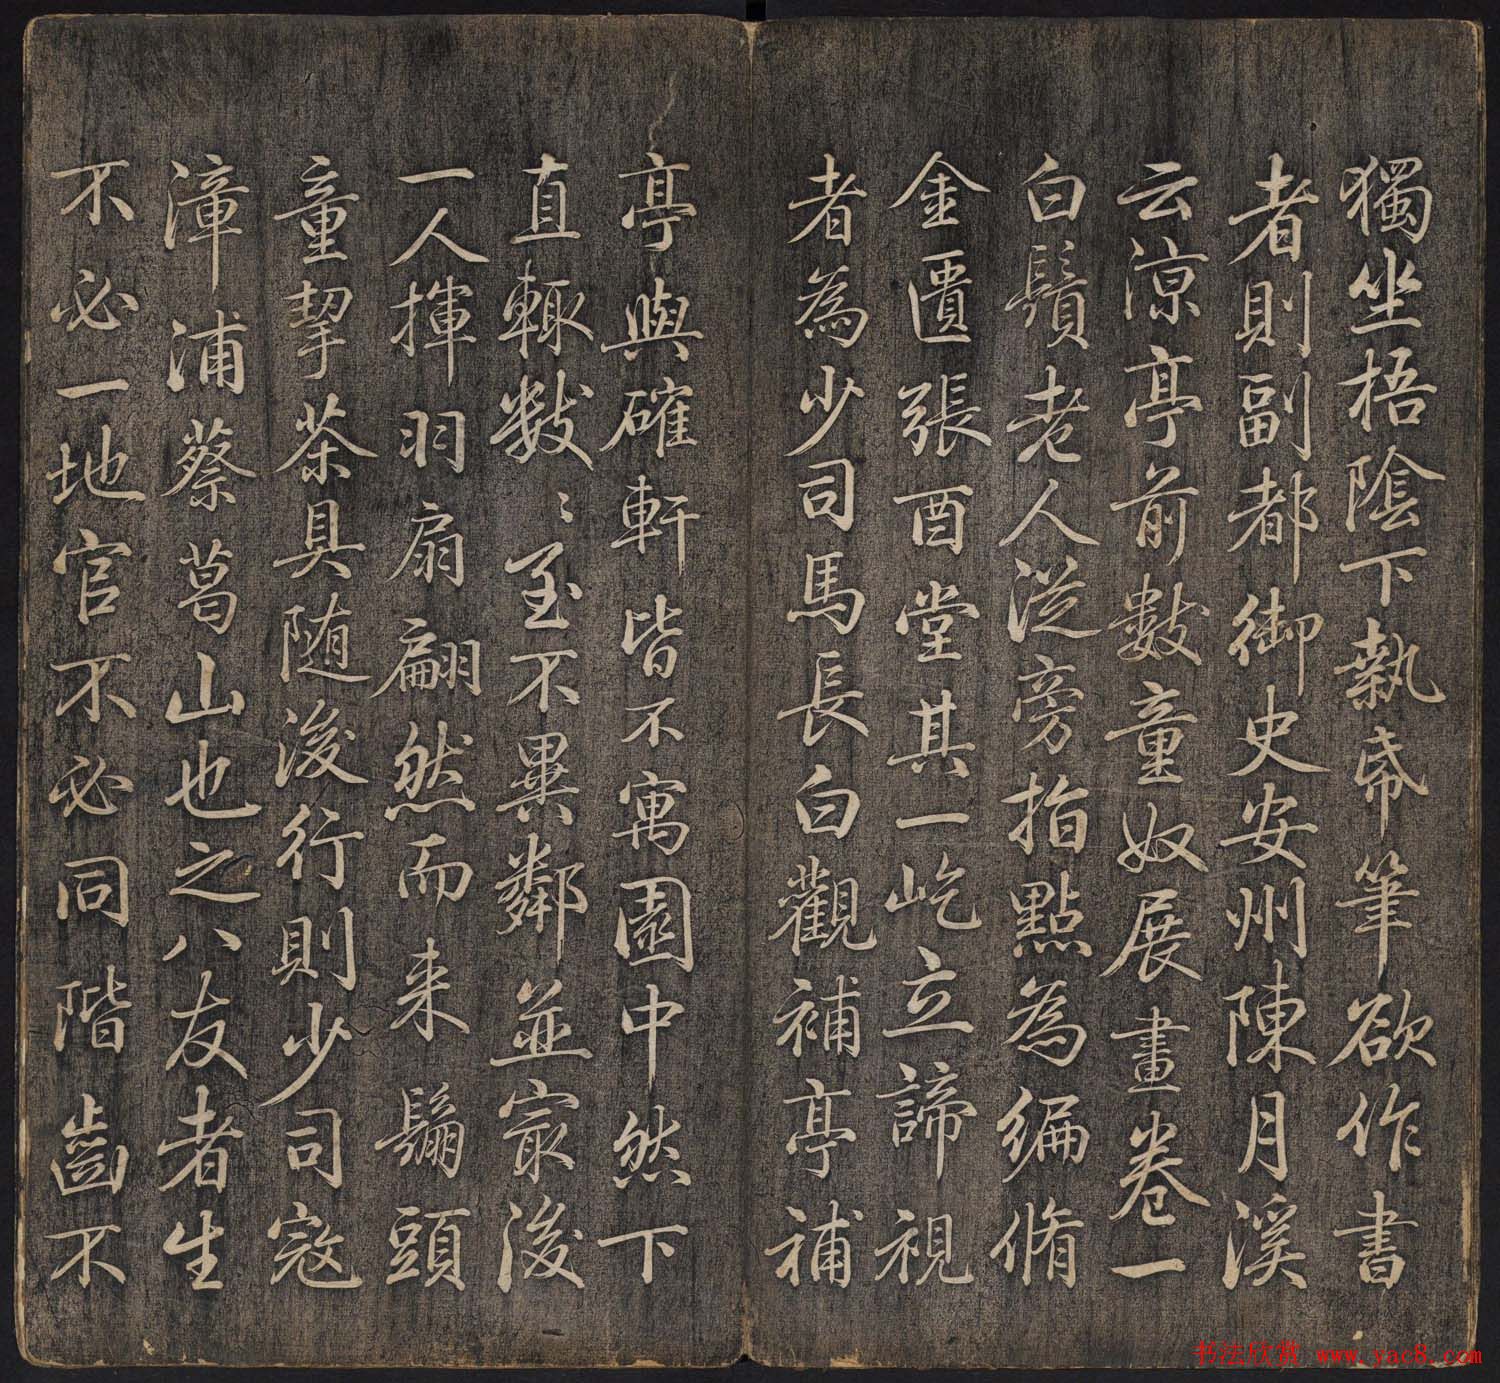 獨坐梧陰下執帋筆欲作書
者則副都御史安州陳月溪
云涼亭前數童奴展畫卷一
白鬚老人從旁指點為編脩
金匱張酉堂其一屹立諦視
者為少司馬長白觀補亭補
亭與確軒皆不寓園中然下
直輒數〻至不異鄰並寂後
一人揮羽扇翩然而来鬅頭
童挈茶具随後行則少司寇
漳浦蔡葛山也之八友者生
不必一地官不必同階齒不
书法欣赏 www.yac8.com